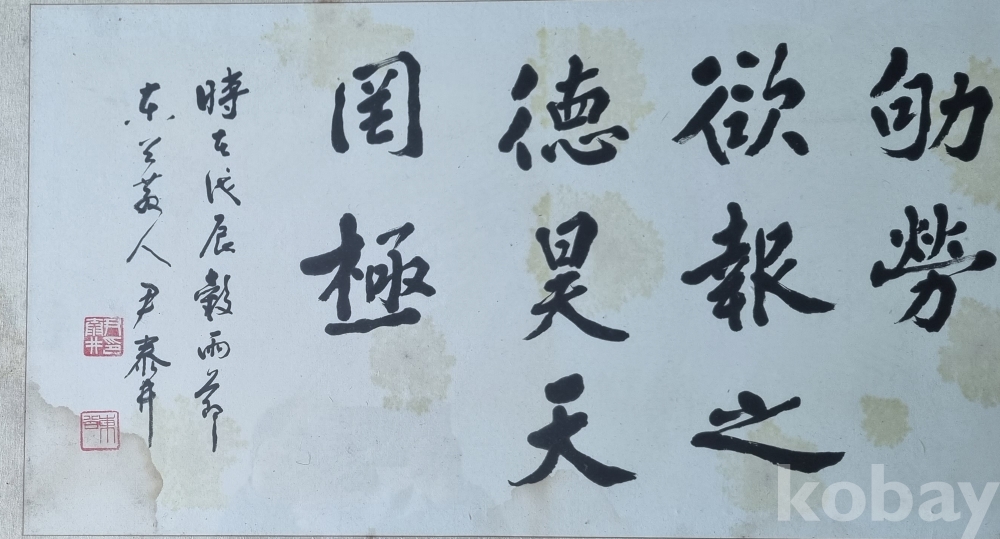 劬勞
欲報之
德昊天
罔極
時在戊辰穀雨節
东谷人尹泰井
kobay